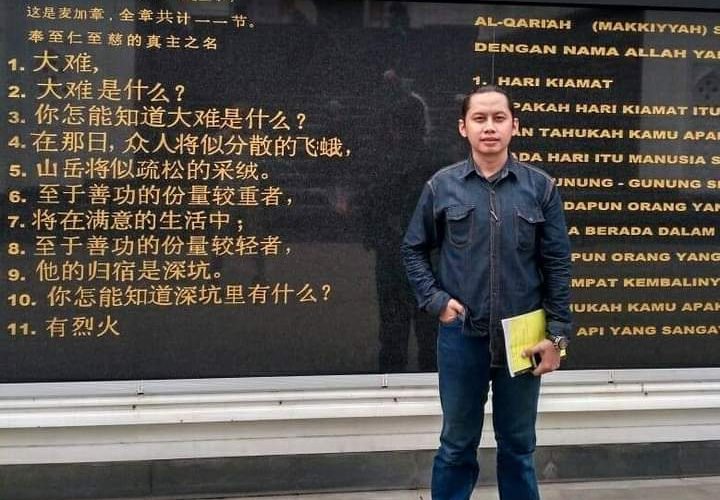 这是麦加章，全章共计一一节。
奉至仁至慈的真主之名
1. 大难，
2. 大难是什么？
3. 你怎能知道大难是什么？
4. 在那日，众人将似分散的飞蛾，
5. 山岳将似疏松的采绒。
6. 至于善功的份量较重者，
7. 将在满意的生活中；
8. 至于善功的份量较轻者，
9. 他的归宿是深坑。
10. 你怎能知道深坑里有什么？
11. 有烈火
AL-QARIAH (MAKKIYYAH) S
DENGAN NAMA ALLAH YA
1. HARI KIAMAT
PAKAH HARI KIAMAT ITU
AN TAHUKAH KAMU APA
ADA HARI ITU MANUSIA S
UNUNG - GUNUNG S
DAPUN ORANG YAN
A BERADA DALAM
PUN ORANG YANG
MPAT KEMBALINY
HUKAH KAMU APA
API YANG SANGA